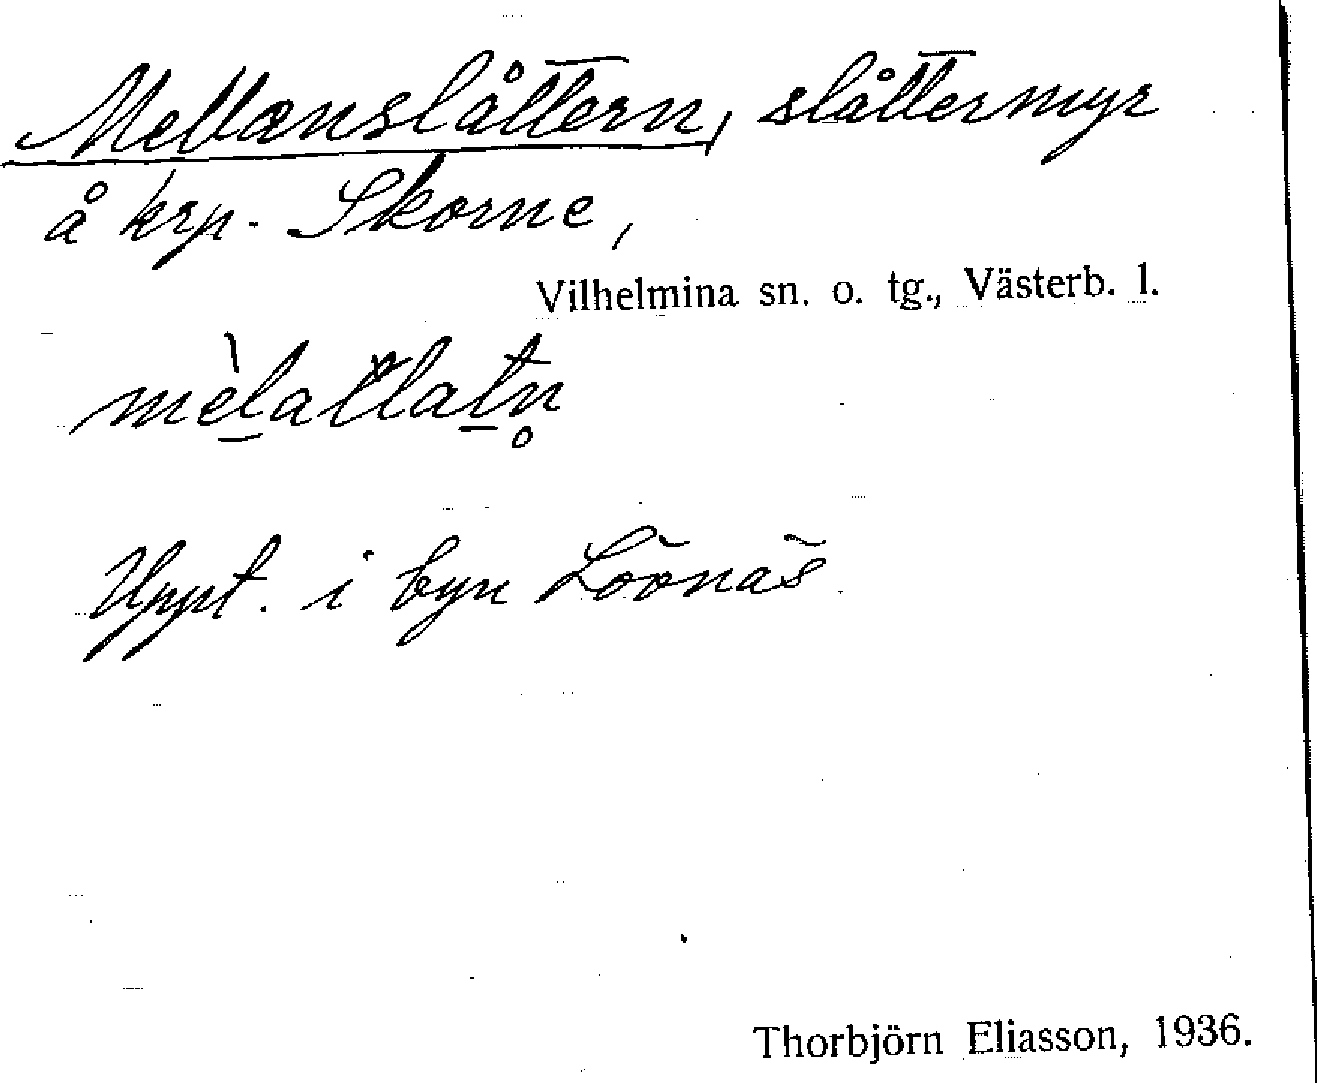 Mellanslåttern, slåttermyr
å krp. Skorne,
Vilhelmina sn. o. tg., Västerb. l.
Uppt. i byn Lövnäs
Thorbjörn Eliasson, 1936.